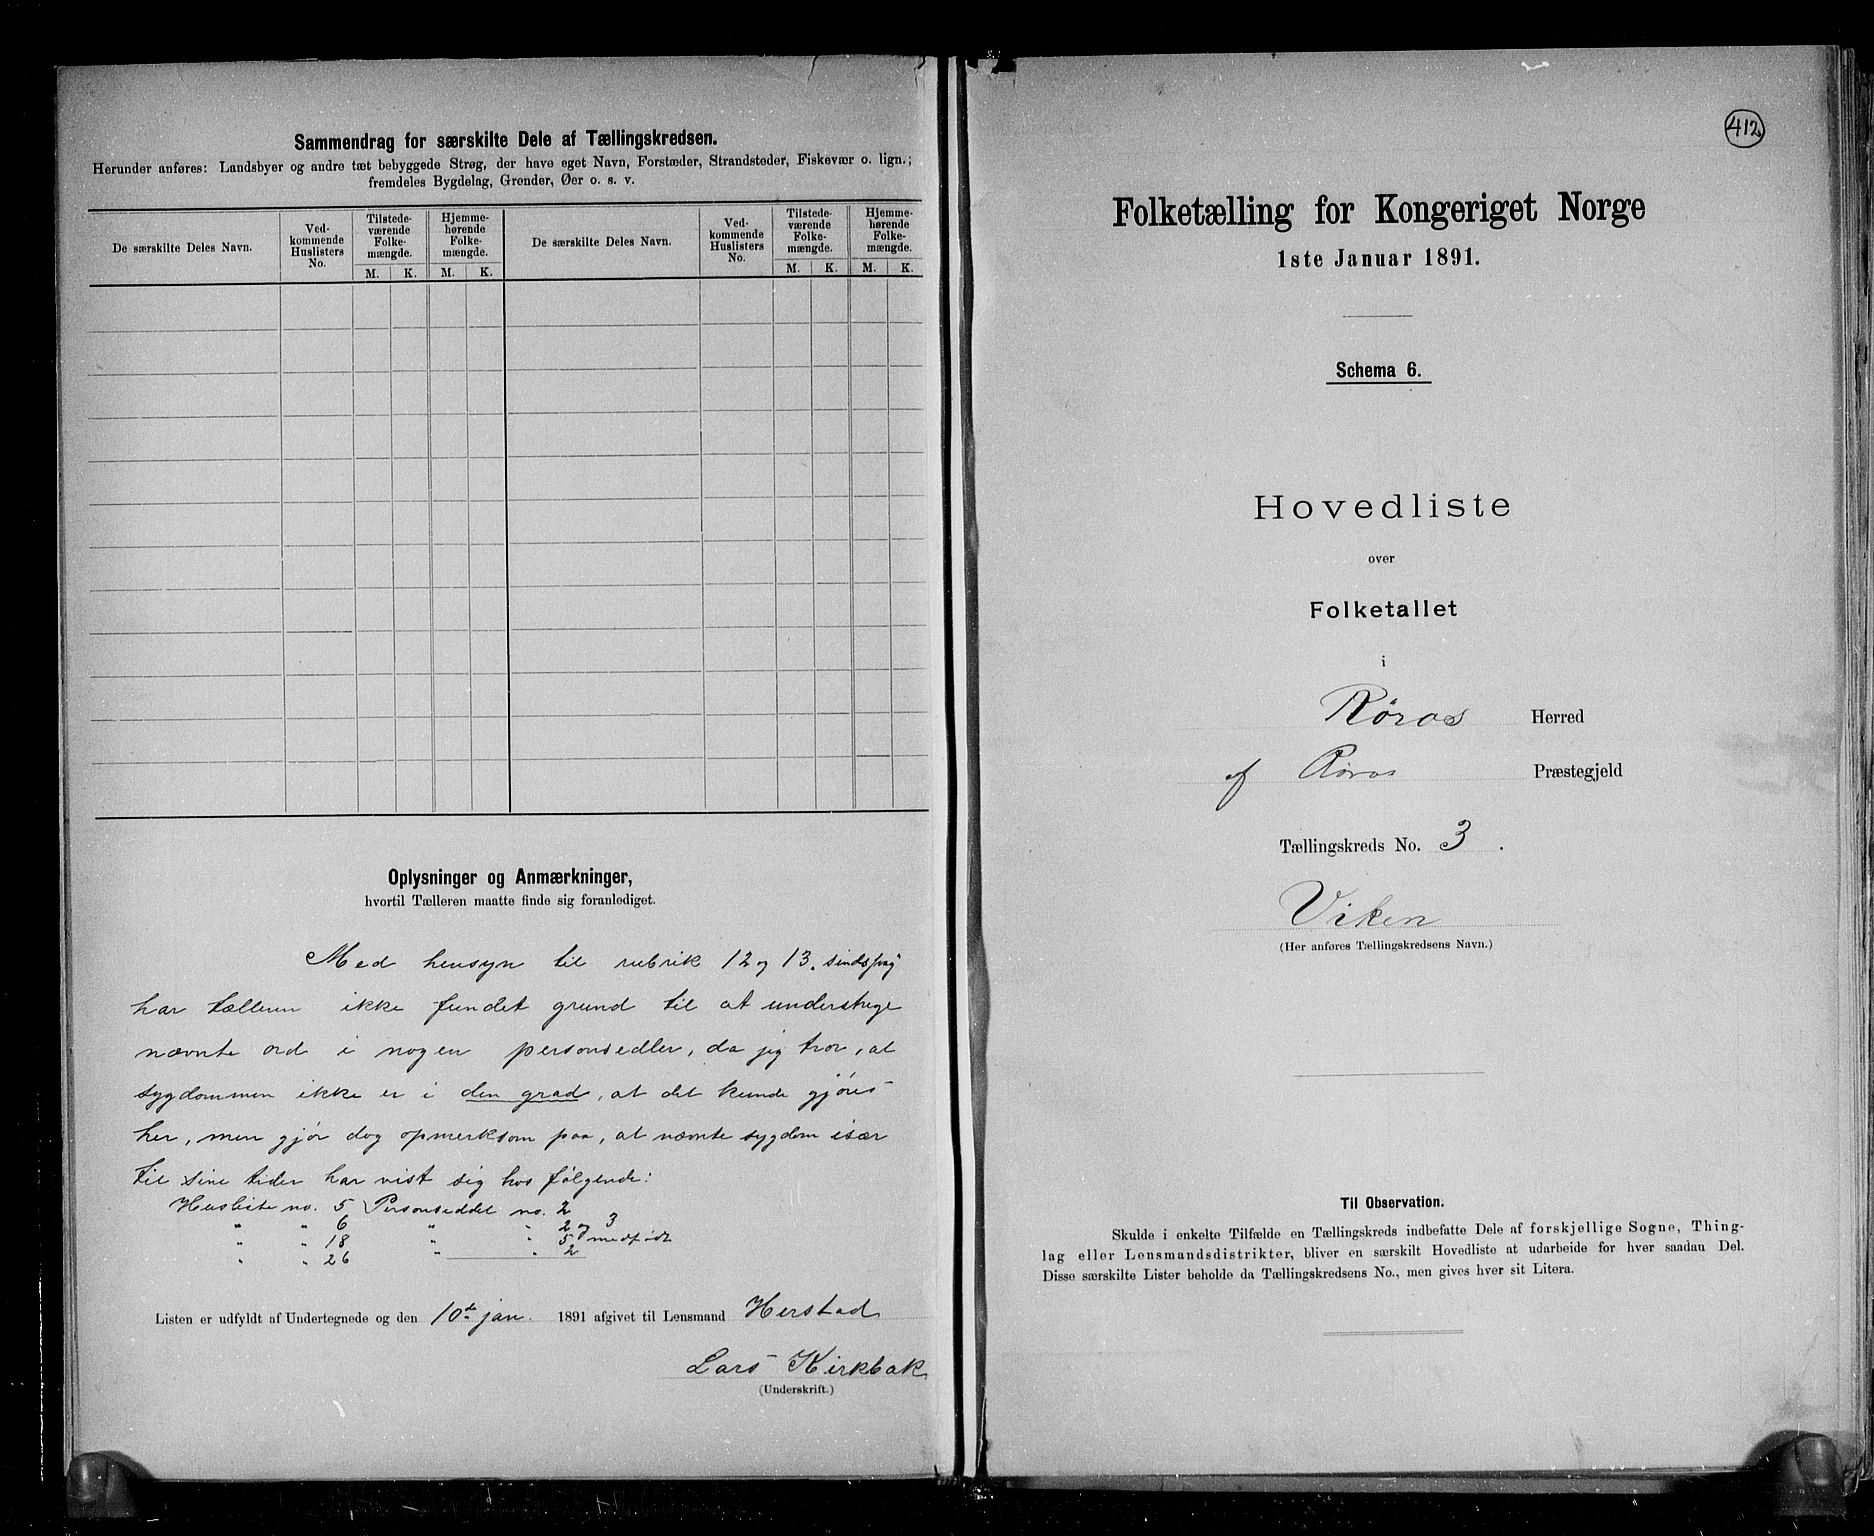 Sammendrag for særskilte Dele af Tællingskredsen.
Herunder anføres: Landsbyer og andre tæt bebyggede Strøg, der have eget Navn, Forstæder, Strandsteder, Fiskevær o. lign.;
fremdeles Bygdelag, Grender, Øer o. s. v.
De særskilte Deles Navn.
Ved-
kommende
Huslisters
No.
Tilstede-
værende
Folke-
mængde.
M. K.
Hjemme-
hørende
Folke-
mængde.
M. K.
De særskilte Deles Navn.
Ved-
kommende
Huslisters
No.
Tilstede-
værende
Folke-
mængde.
M. K.
Hjemme-
hørende
Folke-
mængde.
M. K.
Oplysninger og Anmærkninger,
hvortil Tælleren maatte finde sig foranlediget.
Med hensyn til rubrik 12 og 13.
har tælleren ikke fundet grund til at understrege
nævnte ord i nogen personsedler, da jeg tror, at
sygdommen ikke er i den grad, at det kunde gjøres
her, men gjør dog opmerksom paa, at nævnte sygdom især
til sine tider har vist sig hos følgende:
Husliste no. 5 Personseddel no. 2
" " 6 " " 2 og 3
" " 18 " " 5 medfødt
" " 26 " " 2
Listen er udfyldt af Undertegnede og den 10de jan. 1891 afgivet til Lensmand Herstad
Lars Kirkbak
(Underskrift.)
412
Folketælling for Kongeriget Norge
1ste Januar 1891.
Schema 6.
Hovedliste
over
Folketallet
i
Røros Herred
af Røros Præstegjeld
Tællingskreds No. 3.
Viken
(Her anføres Tællingskredsens Navn.)
Til Observation.
Skulde i enkelte Tilfælde en Tællingskreds indbefatte Dele af forskjellige Sogne, Thing-
lag eller Lensmandsdistrikter, bliver en særskilt Hovedliste at udarbeide for hver saadan Del.
Disse særskilte Lister beholde da Tællingskredsens No., men gives hver sit Litera.